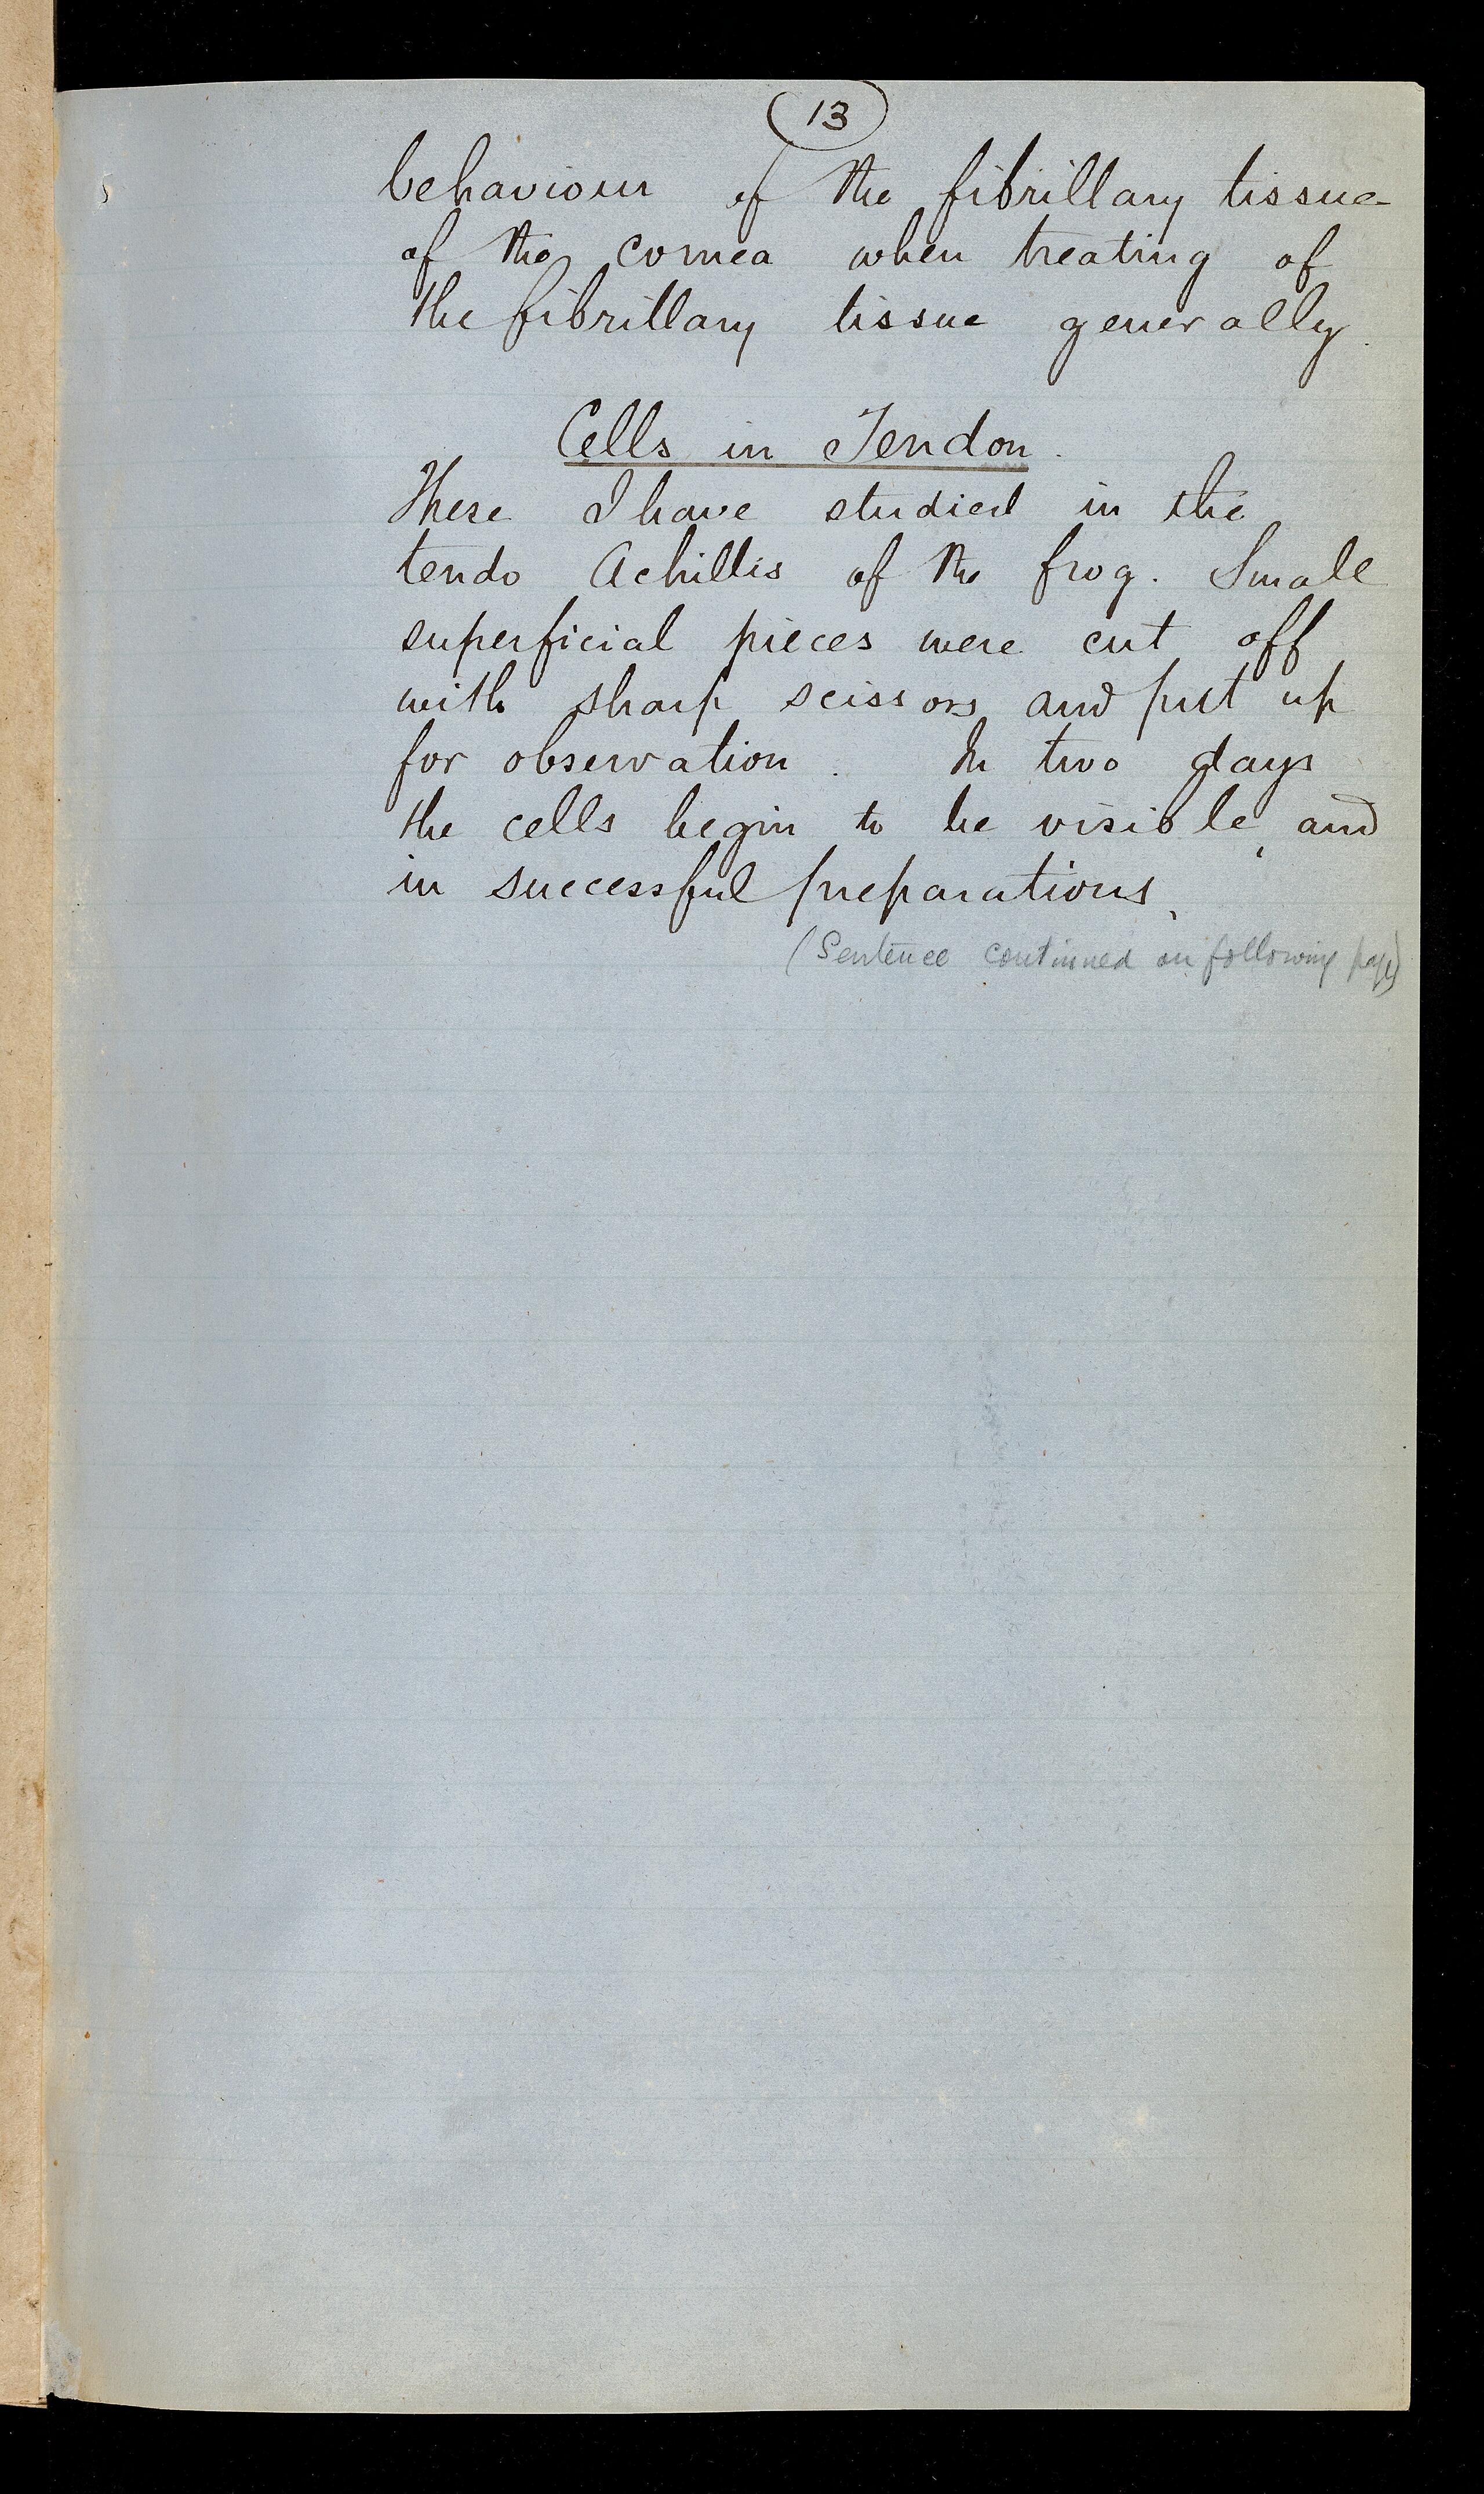 13
behaviour of the fibrillary tissue
of the cornea when treating of
the fibrillary tissue generally.
Cells in Tendon.
These I have studied in the
tendo Achillis of the frog. Small
superficial pieces were cut off
with sharp scissors and put up
for observation. In two days
the cells begin to be visible, and
in successful preparations,
(Sentence continued on following page)